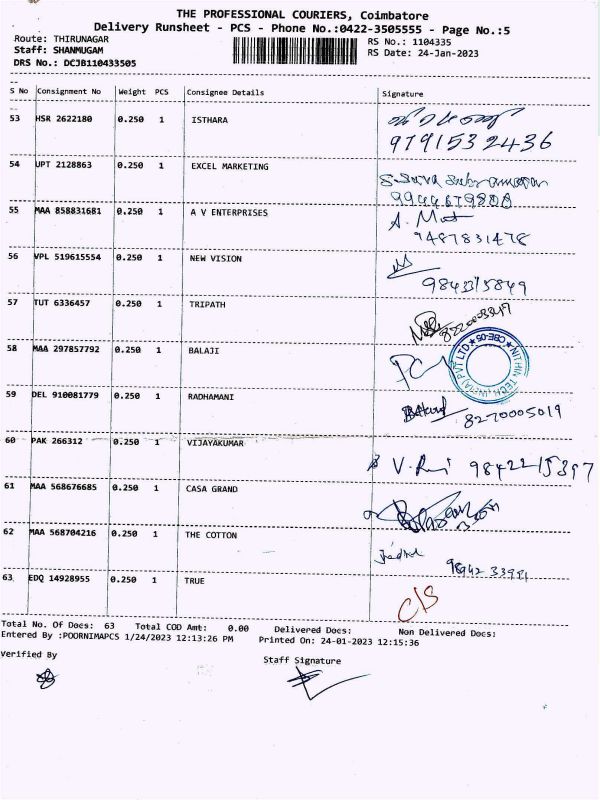 THE PROFESSIONAL COURIERS, Coimbatore
Delivery Runsheet - PCS - Phone No.:0422-3505555 - Page No.:5
Route: THIRUNAGAR
RS No.: 1104335
Staff: SHANMUGAM
RS Date: 24-Jan-2023
DRS No.: DCJB110433505
S No Consignment No Weight PCS Consignee Details Signature
53 HSR 2622180 0.250 1 ISTHARA
9791532436
54 UPT 2128863 0.250 1 EXCEL MARKETING
55 MAA 858831681 0.250 1 A V ENTERPRISES
9487831478
56 VPL 519615554 0.250 1 NEW VISION
57 TUT 6336457 0.250 1 TRIPATH
58 MAA 297857792 0.250 1 BALAJI
59 DEL 910081779 0.250 1 RADHAMANI
8270005019
60 PAK 266312 0.250 1 VIJAYAKUMAR
61 MAA 568676685 0.250 1 CASA GRAND
62 MAA 568704216 0.250 1 THE COTTON
63 EDQ 14928955 0.250 1 TRUE
C/S
Total No. Of Docs: 63 Total COD Amt: 0.00 Delivered Docs: Non Delivered Docs:
Entered By :POORNIMAPCS 1/24/2023 12:13:26 PM Printed On: 24-01-2023 12:15:36
Verified By
Staff Signature